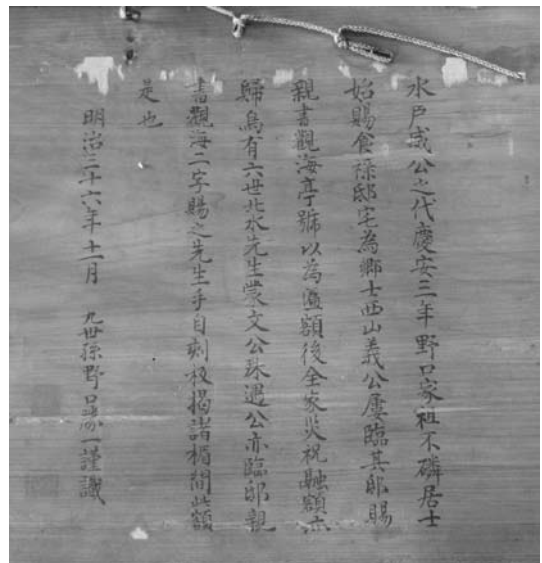 水戸威公之代慶安三年野口家祖不磷居士
始賜食祿邸宅為郷士西山義公屢臨其邸賜
親書觀海亭號以為匾額後全家災祝融額亦
歸烏有六世北水先生蒙文公殊遇公亦臨邸親
書觀海二字賜之先生手自刻板揭諸楣間此額
是也
明治三十六年十二月 九世孫野口 一謹識